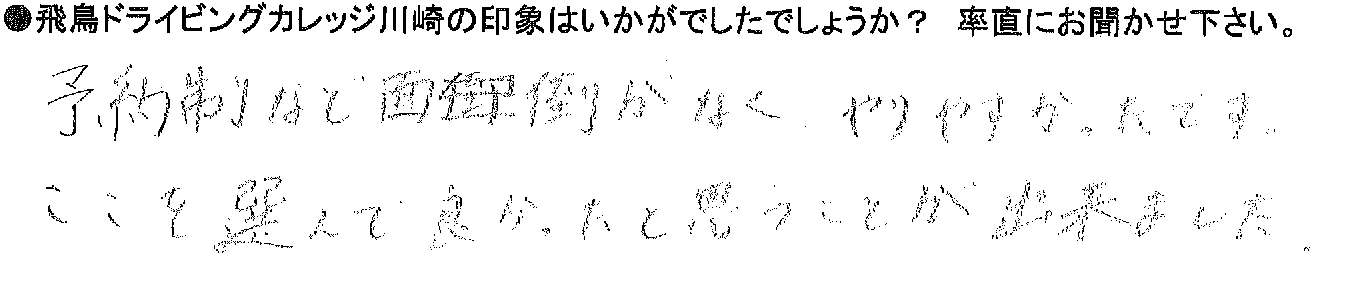 ●飛鳥ドライビングカレッジ川崎の印象はいかがでしたでしょうか？ 率直にお聞かせ下さい。
予約制など面倒がなく、やりやすかったです。
ここを選んで良かったと思うことが出来ました。